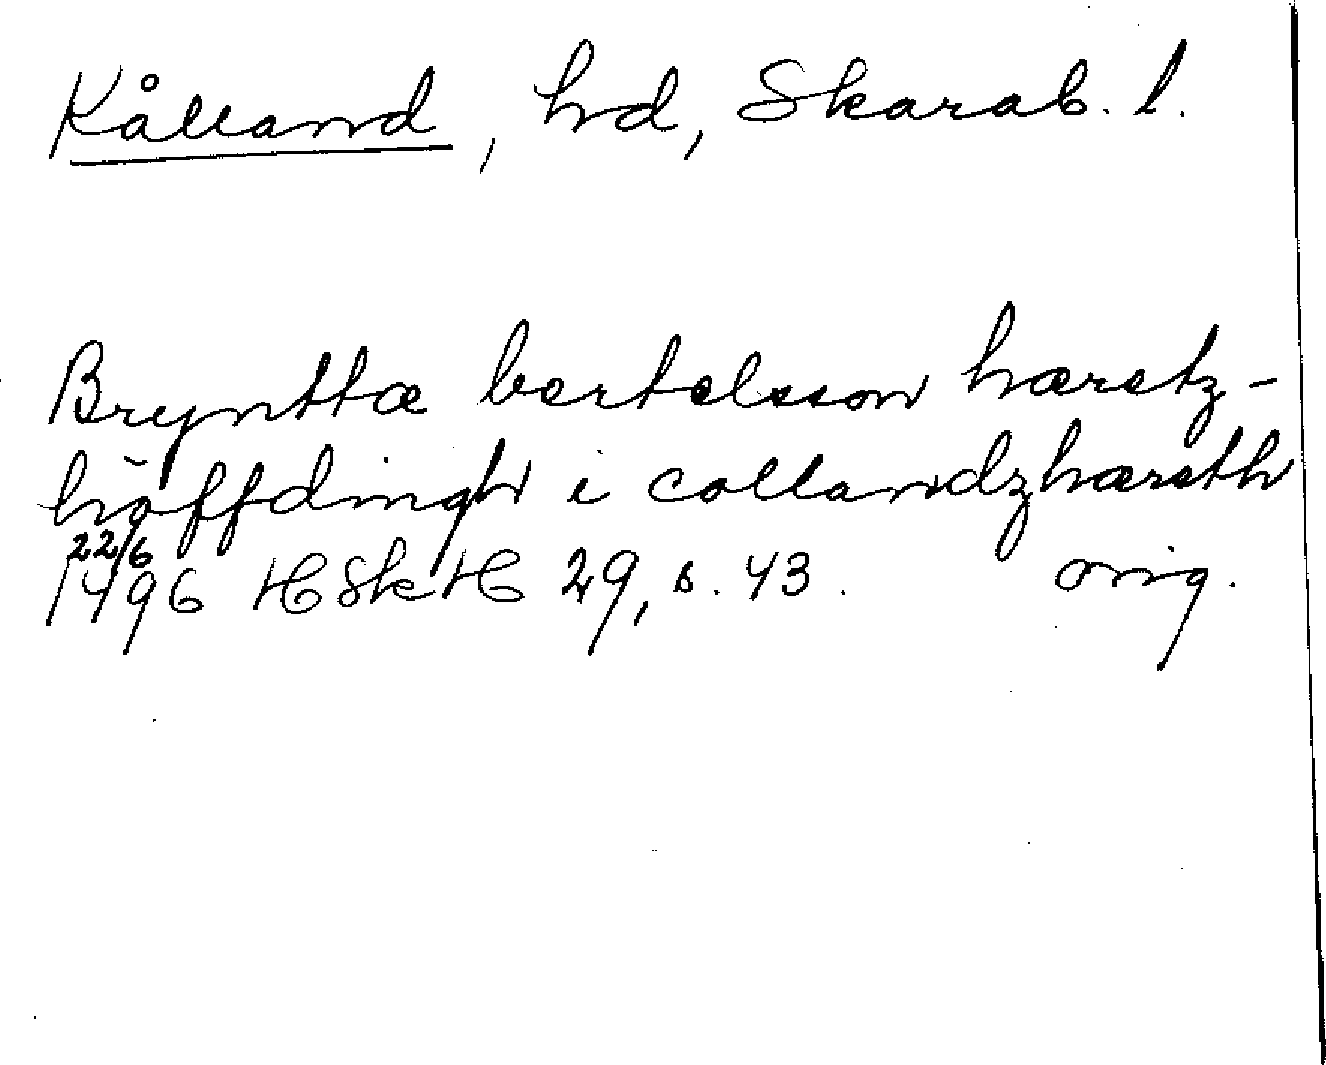 Kålland, hd, Skarab. l.
Brynttæ bertelsson hæretz-
höffdingh i collandzhæreth
22/6
1496 HSkH 29, s. 43. orig.